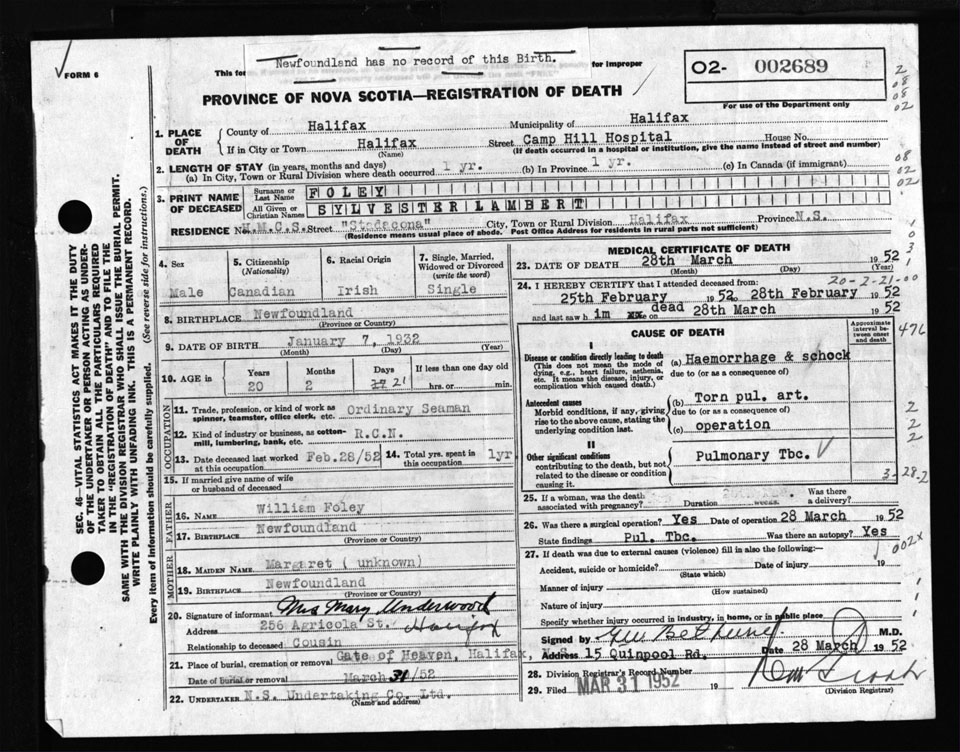 Newfoundland has no record of this Birth.
FORM 6
This for for improper
O2- 002689
PROVINCE OF NOVA SCOTIA—REGISTRATION OF DEATH
For use of the Department only
1. PLACE OF DEATH
County of Halifax Municipality of Halifax
If in City or Town Halifax Street Camp Hill Hospital House No.
(Name) (If death occurred in a hospital or institution, give the name instead of street and number)
2. LENGTH OF STAY (in years, months and days)
(a) In City, Town or Rural Division where death occurred 1 yr. (b) In Province 1 yr. (c) In Canada (if immigrant)
3. PRINT NAME OF DECEASED
Surname or Last Name FOLEY
All Given or Christian Names SYLVESTER LAMBERT
RESIDENCE No. H.M.C.S. Street "Stadacona" City, Town or Rural Division Halifax Province N.S.
(Residence means usual place of abode. Post Office Address for residents in rural parts not sufficient)
4. Sex Male
5. Citizenship (Nationality) Canadian
6. Racial Origin Irish
7. Single, Married, Widowed or Divorced (write the word) Single
8. BIRTHPLACE Newfoundland
(Province or Country)
9. DATE OF BIRTH January 7, 1932
(Month) (Day) (Year)
10. AGE in Years Months Days If less than one day old
20 2 21 hrs. or min.
OCCUPATION
11. Trade, profession, or kind of work as spinner, teamster, office clerk, etc. Ordinary Seaman
12. Kind of industry or business, as cotton-mill, lumbering, bank, etc. R.C.N.
13. Date deceased last worked at this occupation Feb.28/52
14. Total yrs. spent in this occupation 1yr
15. If married give name of wife or husband of deceased
FATHER
16. NAME William Foley
17. BIRTHPLACE Newfoundland
(Province or Country)
MOTHER
18. MAIDEN NAME Margaret ( unknown)
19. BIRTHPLACE Newfoundland
(Province or Country)
20. Signature of informant Mrs Mary Underwood
Address 256 Agricola St. Halifax
Relationship to deceased Cousin
21. Place of burial, cremation or removal Gate of Heaven, Halifax, N.S.
Date of burial or removal March 31/52
22. UNDERTAKER N.S. Undertaking Co. Ltd.
(Name and address)
MEDICAL CERTIFICATE OF DEATH
23. DATE OF DEATH 28th March 1952
(Month) (Day) (Year)
24. I HEREBY CERTIFY that I attended deceased from: 20-2-21-00
25th February 1952 to 28th February 1952
and last saw him dead on 28th March 1952
CAUSE OF DEATH
Approximate interval between onset and death
I
Disease or condition directly leading to death (a) Haemorrhage & schock
(This does not mean the mode of dying, e.g., heart failure, asthenia, etc. It means the disease, injury, or complication which caused death.)
due to (or as a consequence of)
Antecedent causes (b) Torn pul. art.
Morbid conditions, if any, giving rise to the above cause, stating the underlying condition last.
due to (or as a consequence of)
(c) operation
II
Other significant conditions Pulmonary Tbc.
contributing to the death, but not related to the disease or condition causing it.
476
3-28-2
25. If a woman, was the death associated with pregnancy? Duration weeks. Was there a delivery?
26. Was there a surgical operation? Yes Date of operation 28 March 1952
State findings Pul. Tbc. Was there an autopsy? Yes
27. If death was due to external causes (violence) fill in also the following:
002x
Accident, suicide or homicide? Date of injury 19
(State which)
Manner of injury
(How sustained)
Nature of injury
Specify whether injury occurred in industry, in home, or in public place
Signed by M.D.
Address 15 Quinpool Rd. Date 28 March 1952
28. Division Registrar's Record Number
29. Filed MAR 31 1952 19
(Division Registrar)
SEC. 46—VITAL STATISTICS ACT MAKES IT THE DUTY OF THE UNDERTAKER OR PERSON ACTING AS UNDERTAKER TO OBTAIN ALL THE PARTICULARS REQUIRED IN THE "REGISTRATION OF DEATH" AND TO FILE THE SAME WITH THE DIVISION REGISTRAR WHO SHALL ISSUE THE BURIAL PERMIT.
WRITE PLAINLY WITH UNFADING INK. THIS IS A PERMANENT RECORD.
Every item of Information should be carefully supplied. (See reverse side for instructions.)